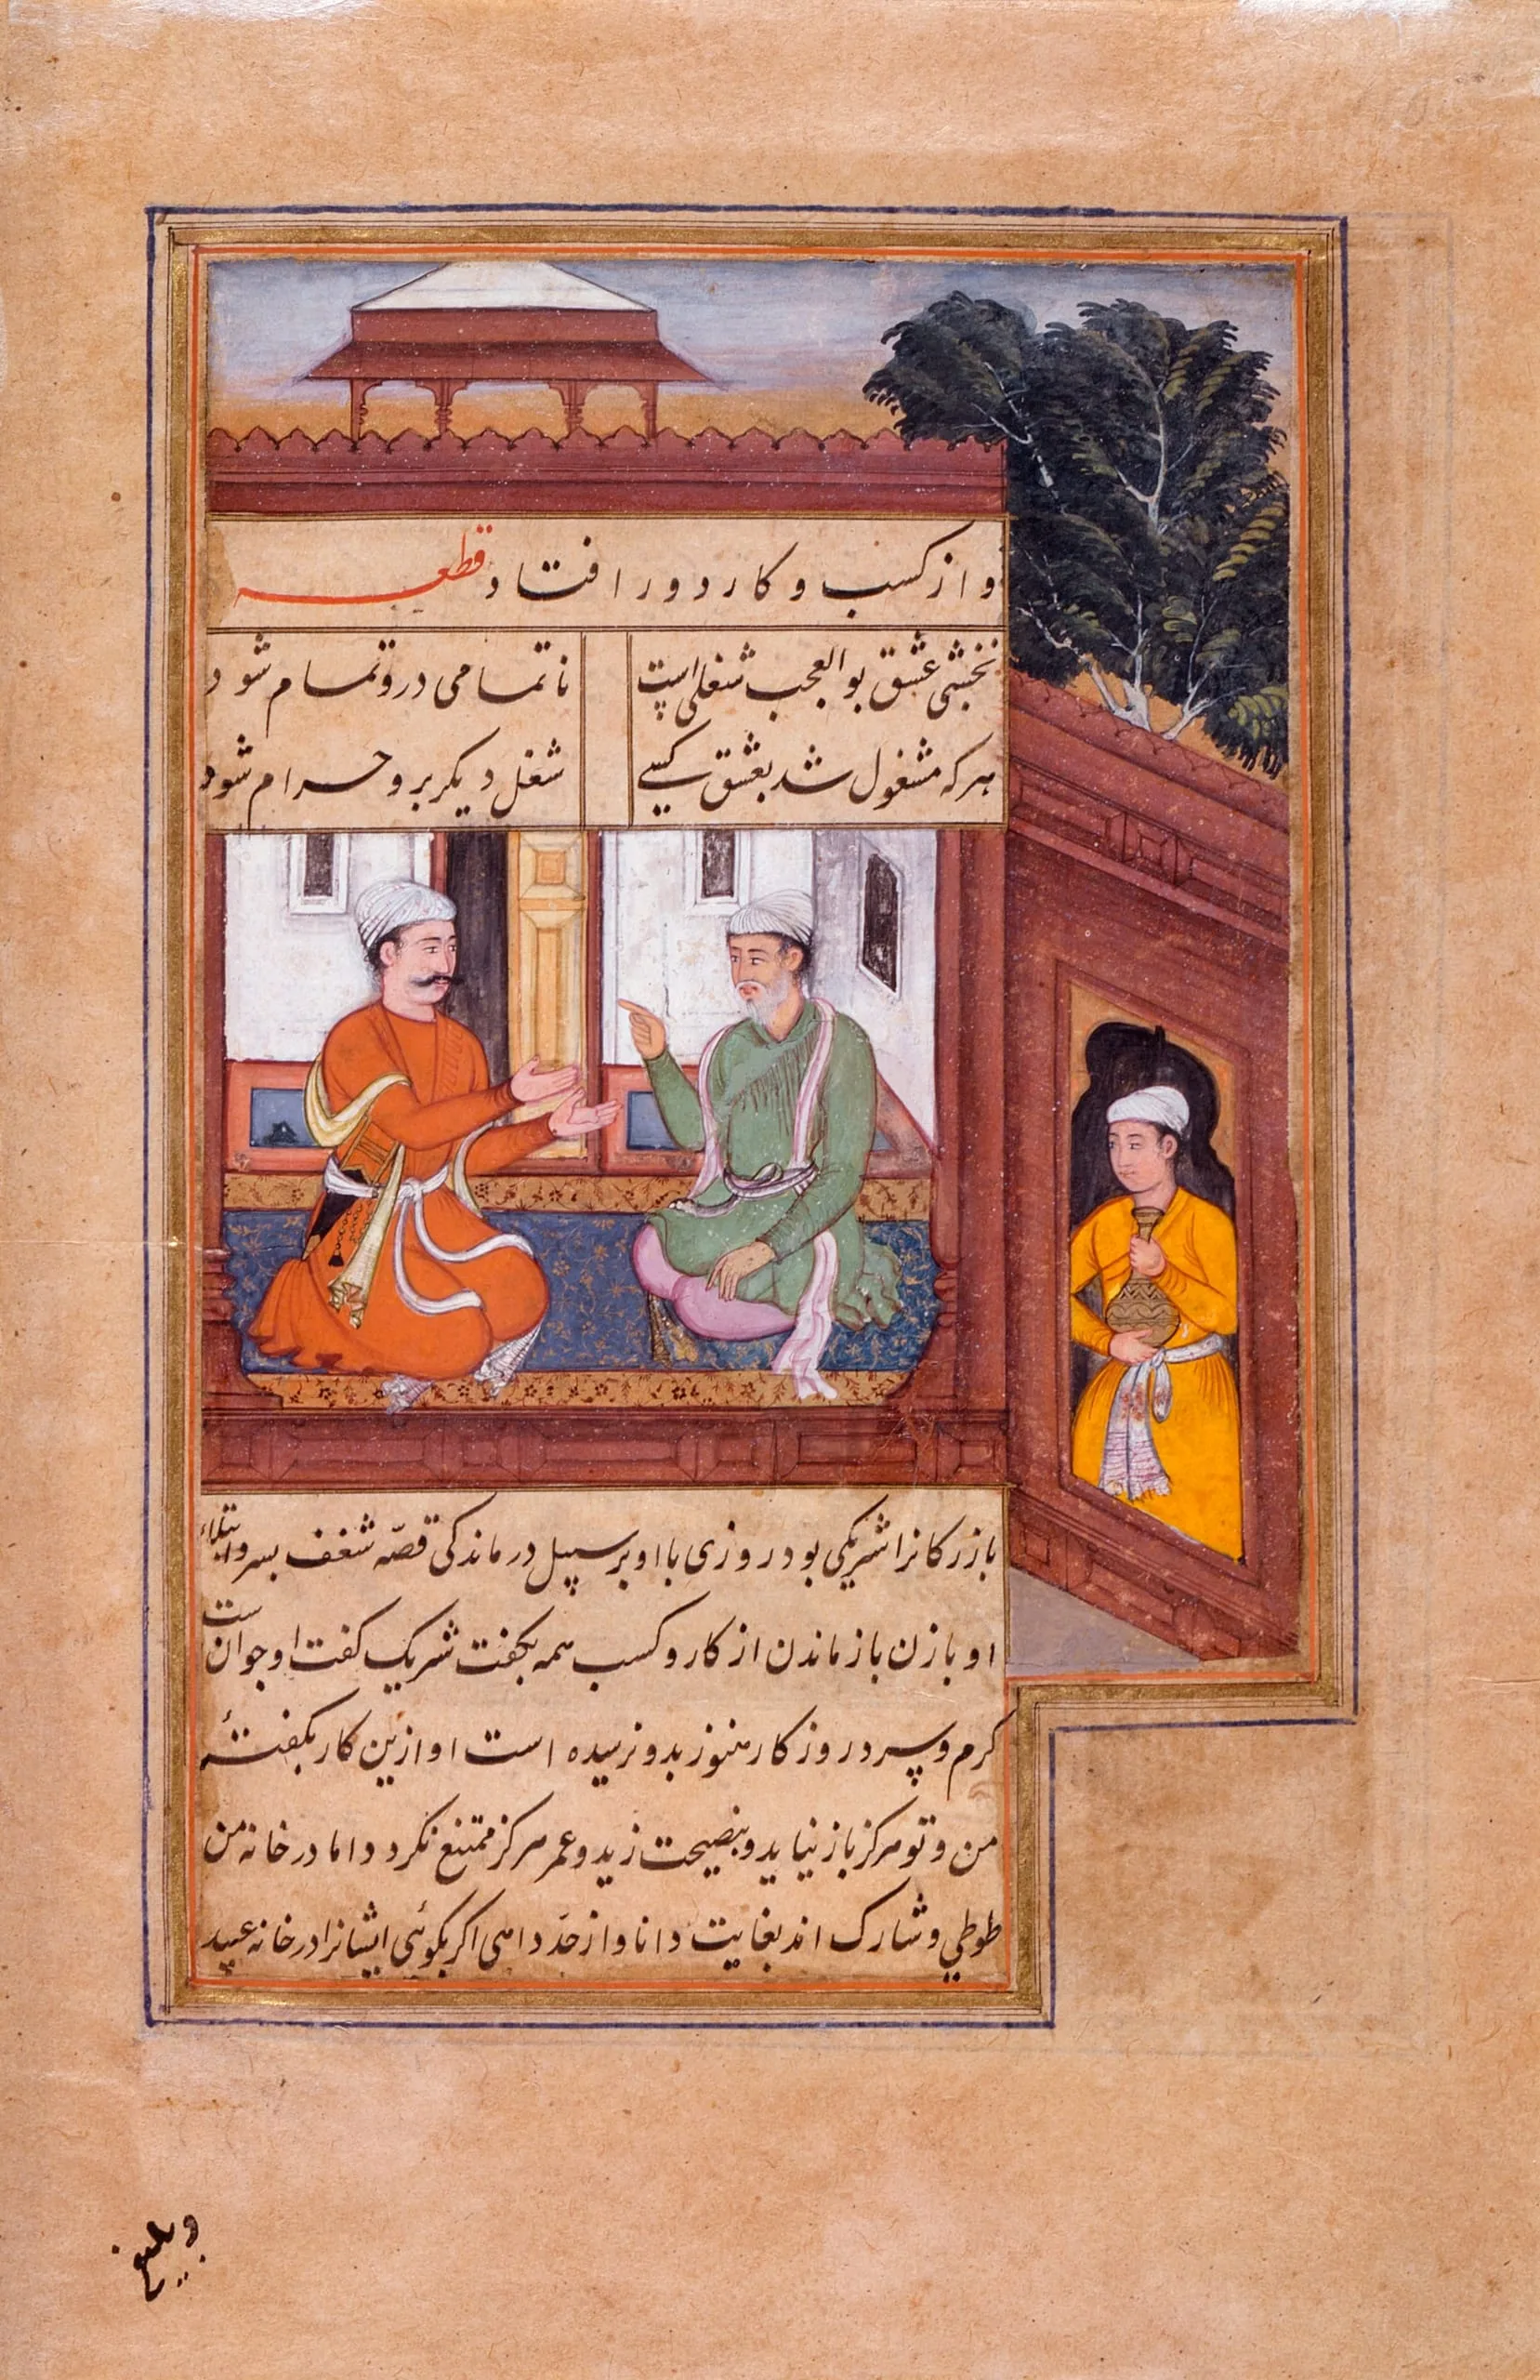 و از کسب و کار دور افتاد قطعه
نخشبی عشق بوالعجب شغلی است ناتمامی درو تمام شود
هرکه مشغول شد بعشق کسی شغل دیکر برو حرام شود
بازرکانرا شریکی بود روزی با او بر سبیل درماندکی قصّه شغف پسر و ابتلاء
او با زن باز ماندن از کار و کسب همه بکفت شریک کفت او جوان ست
کرم و سرد روزکار هنوز بدو نرسیده است او ازین کار بکفتهٔ
من و تو هرکز باز نیاید و بنصیحت زید و عمر هرکز ممتنع نکردد اما در خانه من
طوطی و شارک اند بغایت دانا و از حدّ داهی اکر بکوئی ایشانرا در خانه عبید